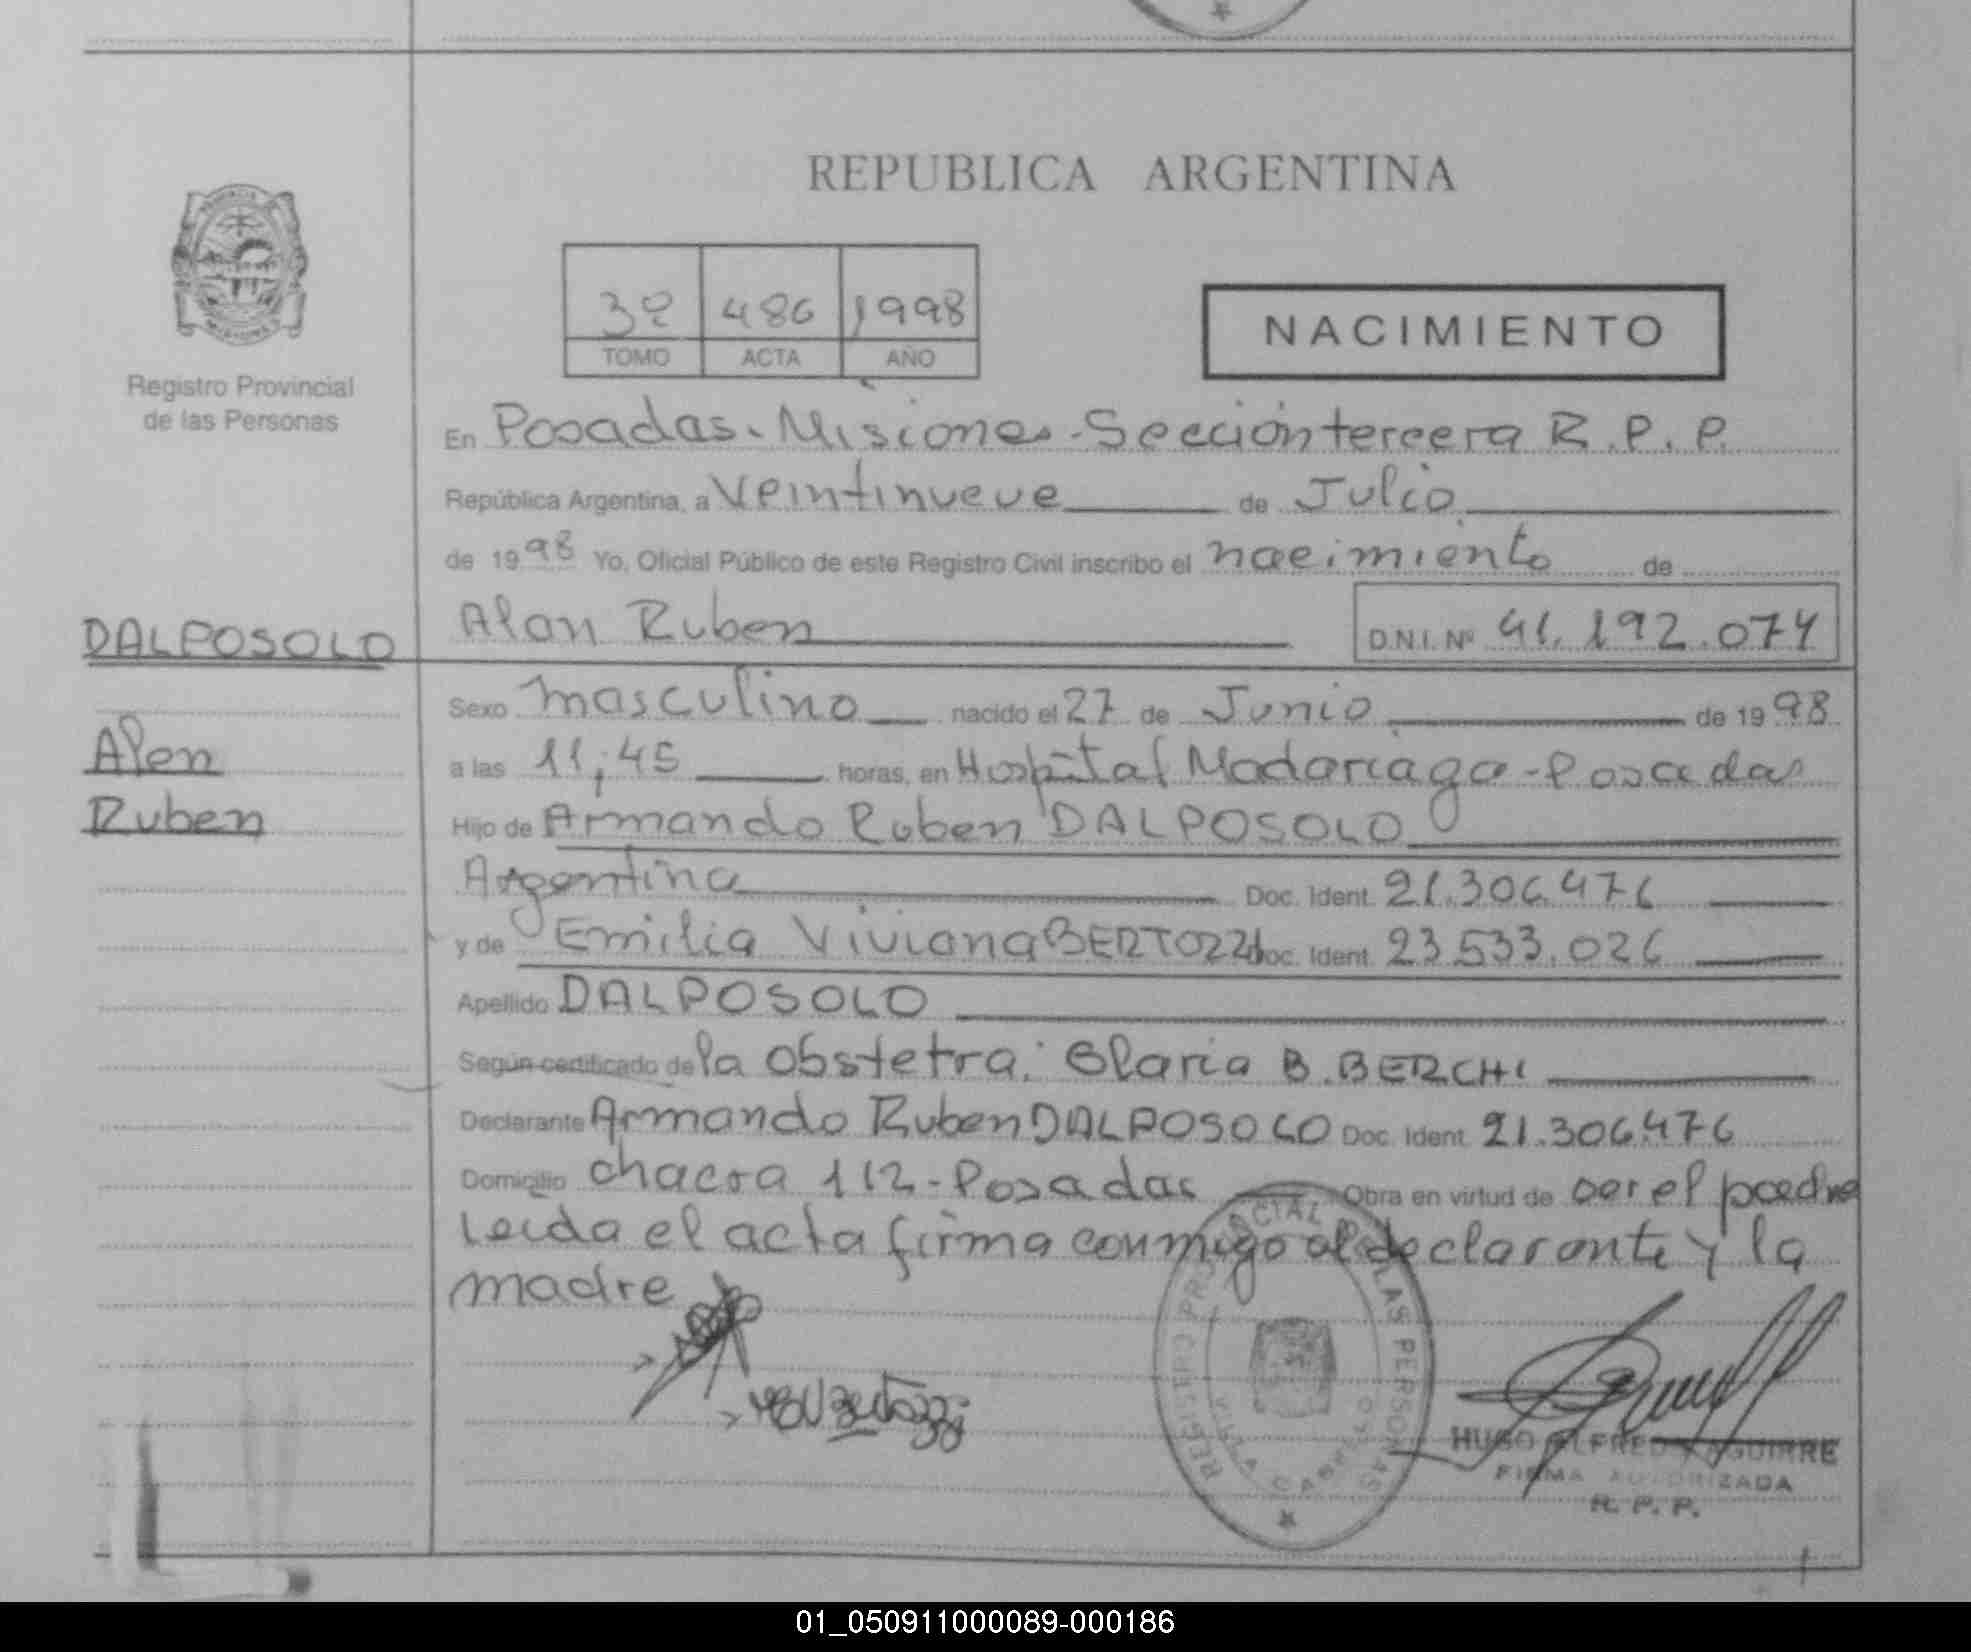 REPUBLICA ARGENTINA
3º 486 1998
TOMO ACTA AÑO
NACIMIENTO
Registro Provincial
de las Personas
En Posadas - Misiones - Sección tercera R.P.P.
República Argentina, a Veintinueve de Julio
de 1998 Yo, Oficial Público de este Registro Civil inscribo el nacimiento de
DALPOSOLO
Alan Ruben D.N.I. Nº 41.192.074
Sexo masculino nacido el 27 de Junio de 1998
Alan
a las 11,45 horas, en Hospital Madariaga - Posadas
Ruben
Hijo de Armando Ruben DALPOSOLO
Argentina Doc. Ident. 21.306.476
y de Emilia Viviana BERTOZZI Doc. Ident. 23.533.026
Apellido DALPOSOLO
Según certificado de la obstetra: Gloria B. BERCHI
Declarante Armando Ruben DALPOSOLO Doc. Ident. 21.306.476
Domicilio chacra 112 - Posadas Obra en virtud de ser el padre
Leida el acta firma conmigo el declarante y la
madre
REGISTRO PROVINCIAL DE LAS PERSONAS
VILLA CABELLO
HUGO ALFREDO AGUIRRE
FIRMA AUTORIZADA
R. P. P.
01_050911000089-000186